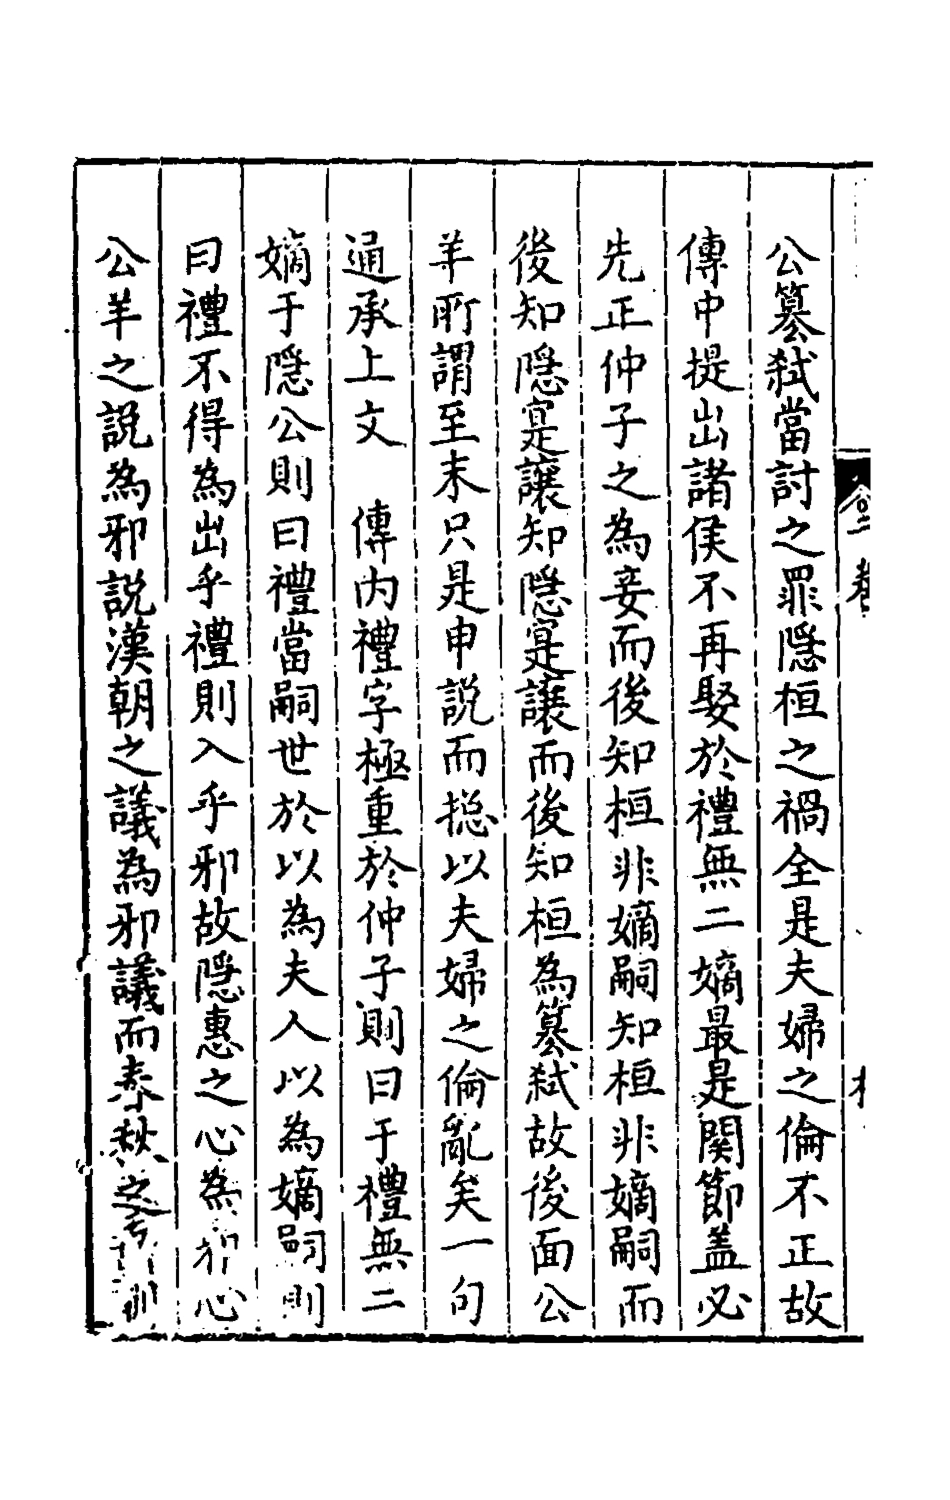 公篡弒當討之罪隱桓之禍全是夫婦之倫不正故
傳中提出諸侯不再娶於禮無二嫡最是関節盖必
先正仲子之為妾而後知桓非嫡嗣知桓非嫡嗣而
後知隱寔讓知隱寔讓而後知桓為篡弒故後面公
羊所謂至末只是申說而揔以夫婦之倫亂矣一句
通承上文　傳内禮字極重於仲子則曰于禮無二
嫡于隱公則曰禮當嗣世於以為夫人以為嫡嗣則
曰禮不得為出乎禮則入乎邪故隱惠之心為邪心
公羊之說為邪說漢朝之議為邪議而春秋之
卷